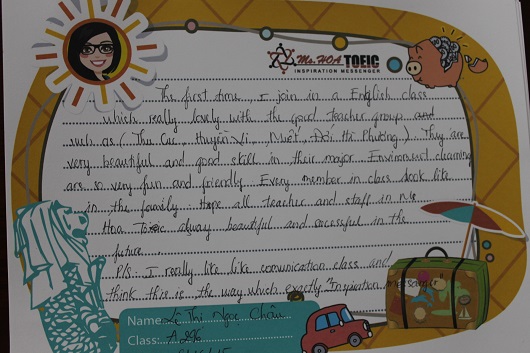 Ms. HOA TOEIC
INSPIRATION MESSENGER
The first time, I join in a English class
which really lovely with the good teacher group and
such as (Thu Cuc, Huyền Vi, Đài Hà Phương). They are
very beautiful and good skill in their major. Enviroment learning
are so very fun and friendly. Every member in class look like
in the family. Hope all teacher and staff in Ms
Hoa Toeic alway beautiful and sucessful in the
future.
P/S: I really like like comunication class and
think this is the way which exactly "Inspiration messenger"
Name: Lê Thị Ngọc Châu
Class: A296